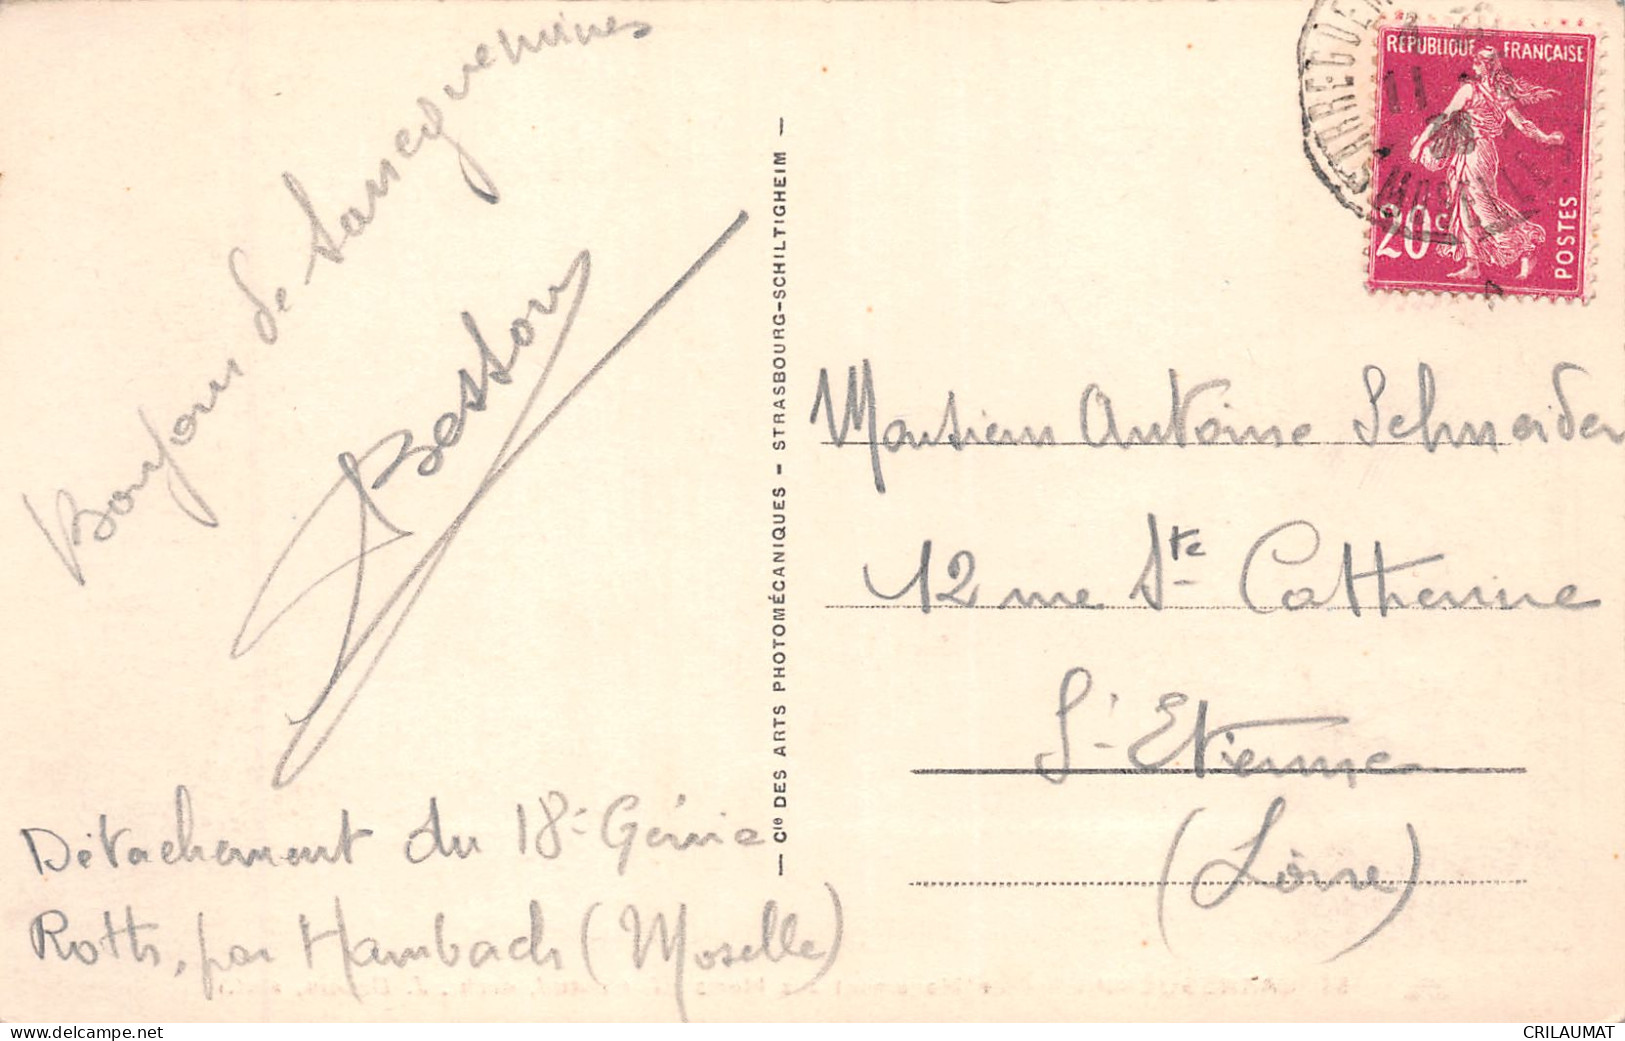 Bonjour de Sarreguemines
Besson
Détachement du 18e Génie
Roth, par Hambach (Moselle)
— Cie DES ARTS PHOTOMÉCANIQUES – STRASBOURG-SCHILTIGHEIM —
SARREGUEMINES
11
MOSELLE
RÉPUBLIQUE FRANÇAISE
20c
POSTES
Monsieur Antoine Schneider
12 rue Ste Catherine
St Etienne
(Loire)
www.delcampe.net
CRILAUMAT